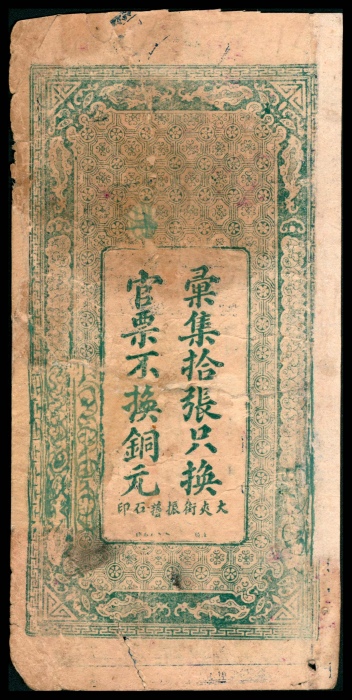 彙集拾張只換
官票不換銅元
大夾街振 石印